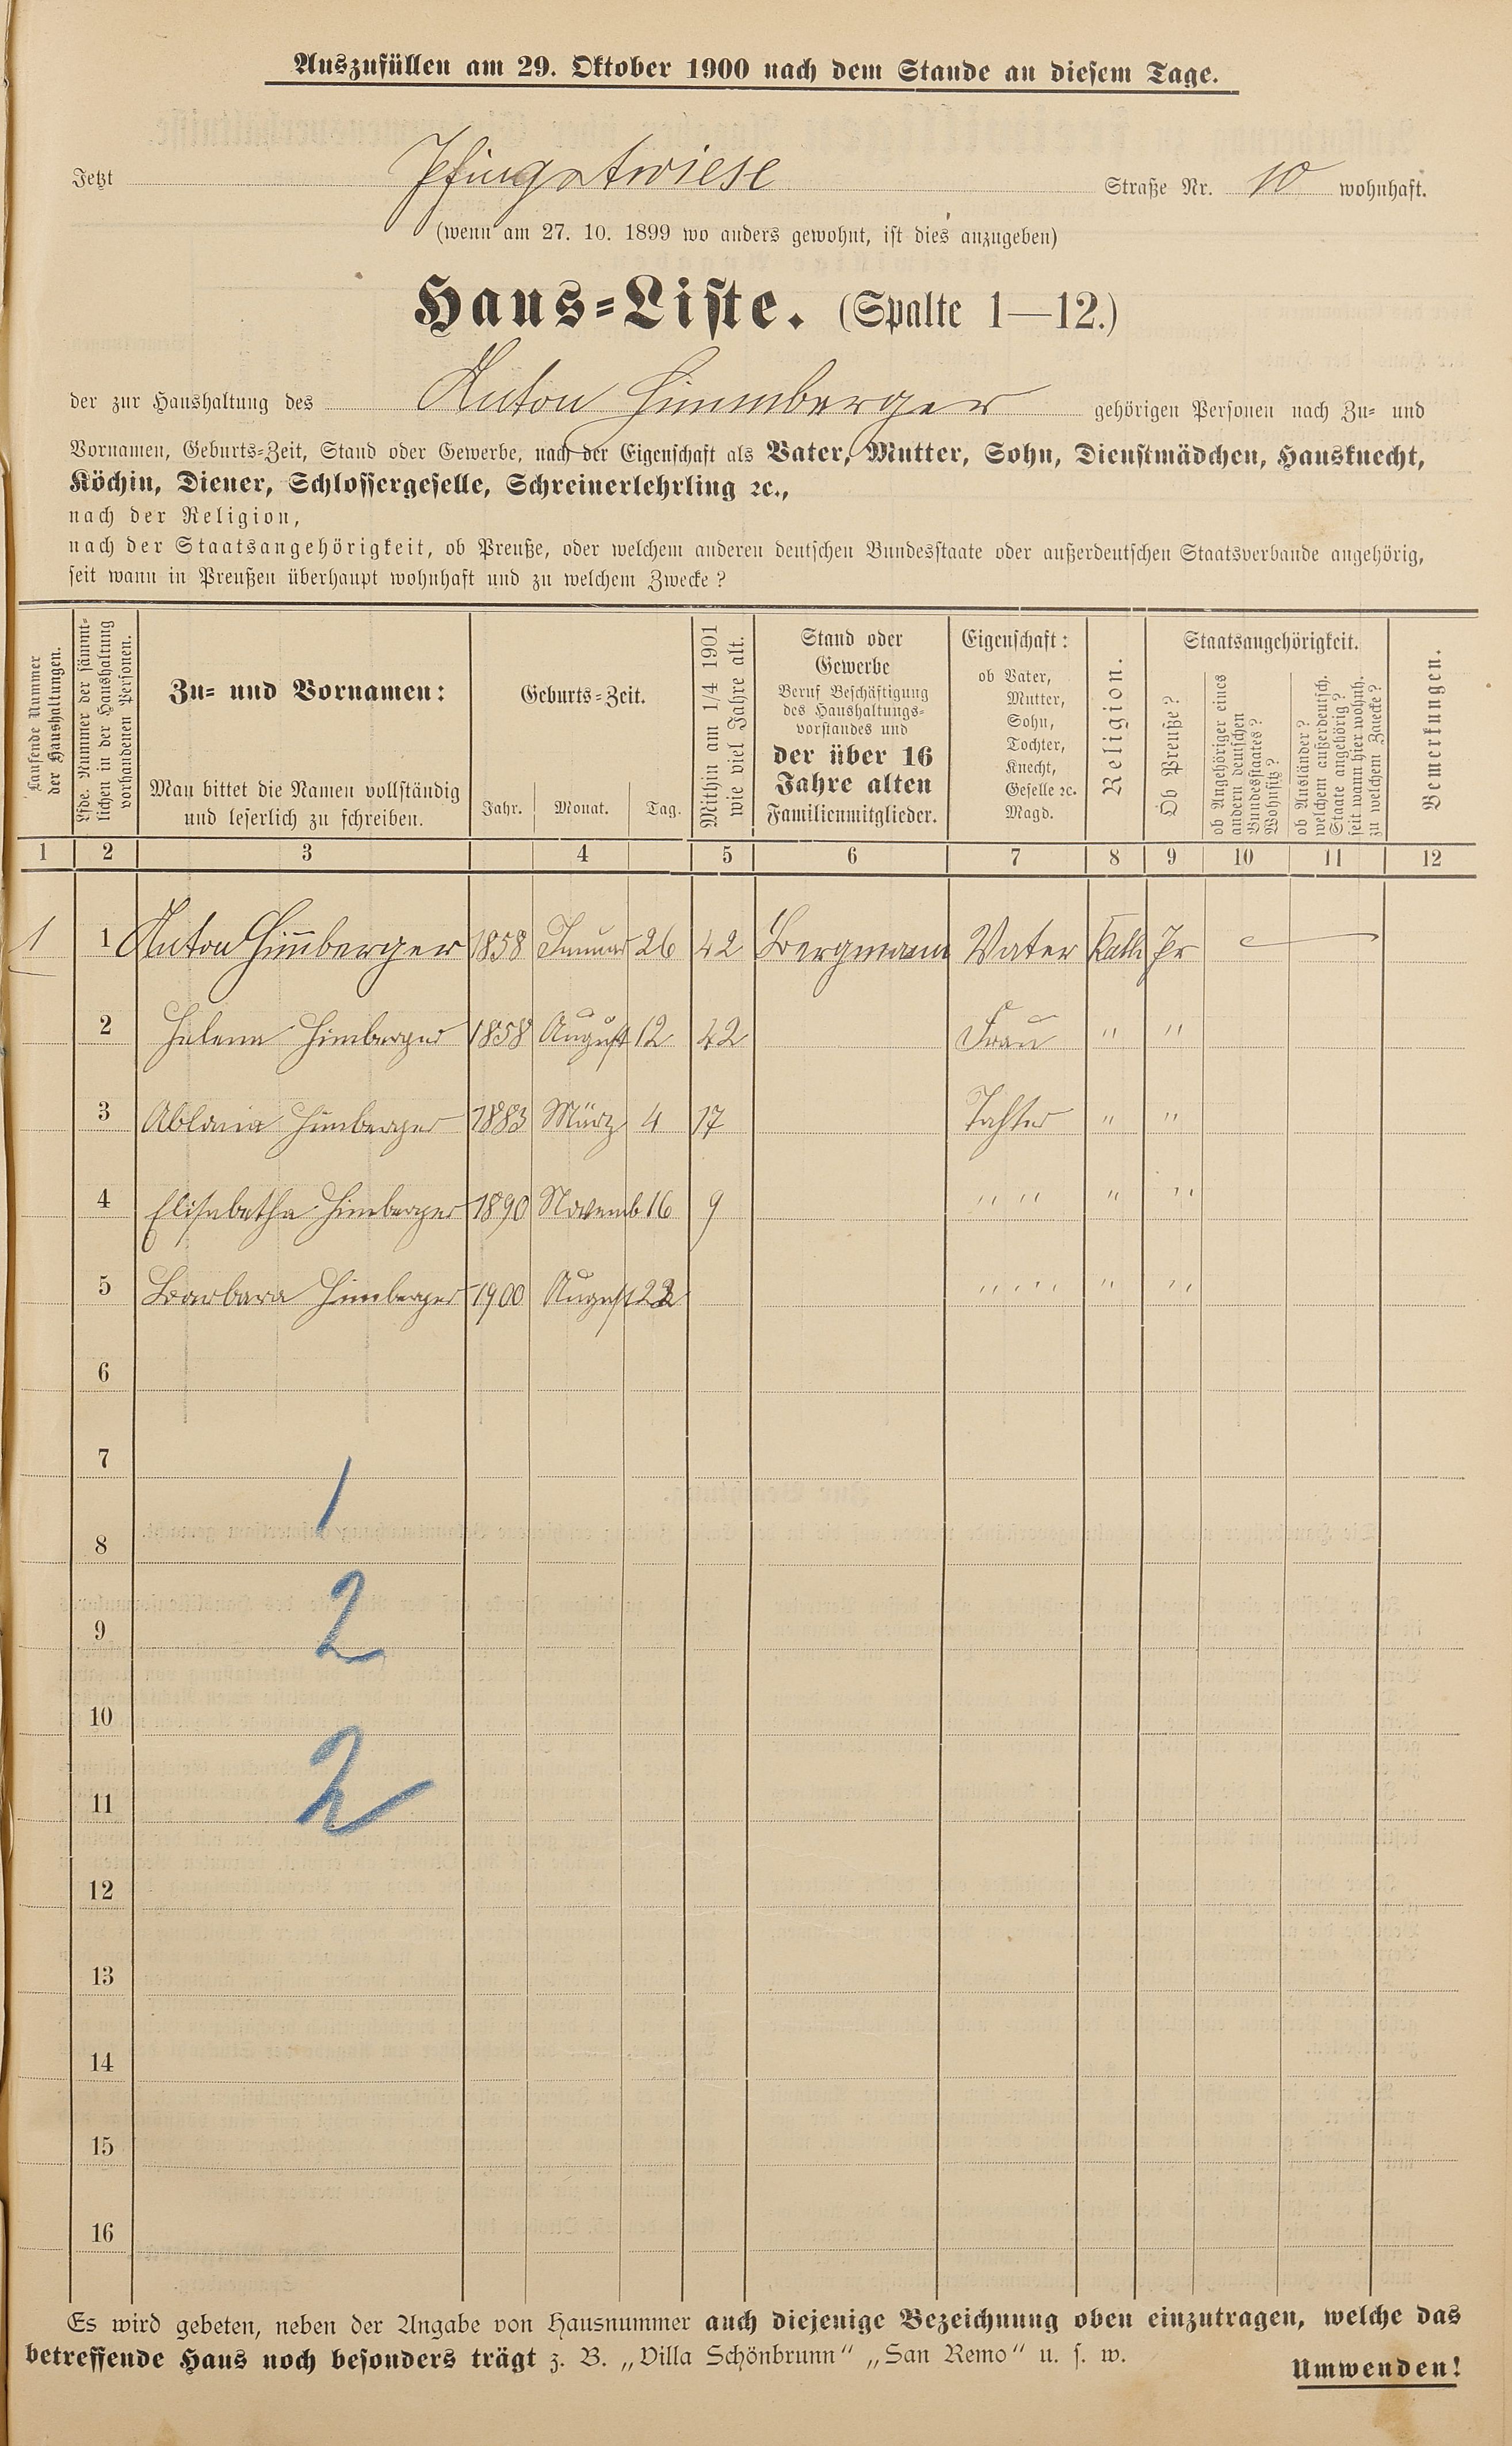 Auszufüllen am 29. Oktober 1900 nach dem Stande an diesem Tage.
Jetzt Pfingstwiese Straße Nr. 10 wohnhaft.
(wenn am 27. 10. 1899 wo anders gewohnt, ist dies anzugeben)
Haus-Liste. (Spalte 1—12.)
der zur Haushaltung des Anton Himmberger gehörigen Personen nach Zu- und
Vornamen, Geburts-Zeit, Stand oder Gewerbe, nach der Eigenschaft als Vater, Mutter, Sohn, Dienstmädchen, Hausknecht,
Köchin, Diener, Schlossergeselle, Schreinerlehrling ꝛc.,
nach der Religion,
nach der Staatsangehörigkeit, ob Preuße, oder welchem anderen deutschen Bundesstaate oder außerdeutschen Staatsverbande angehörig,
seit wann in Preußen überhaupt wohnhaft und zu welchem Zwecke?
Laufende Nummer
der Haushaltungen.
Lfde. Nummer der sämmt-
lichen in der Haushaltung
vorhandenen Personen.
Zu- und Vornamen:
Man bittet die Namen vollständig
und leserlich zu schreiben.
Geburts-Zeit.
Jahr. Monat. Tag.
Mithin am 1/4 1901
wie viel Jahre alt.
Stand oder
Gewerbe
Beruf Beschäftigung
des Haushaltungs-
vorstandes und
der über 16
Jahre alten
Familienmitglieder.
Eigenschaft:
ob Vater,
Mutter,
Sohn,
Tochter,
Knecht,
Geselle ꝛc.
Magd.
Religion.
Staatsangehörigkeit.
Ob Preuße?
ob Angehöriger eines
andern deutschen
Bundesstaates?
Wohnsitz?
ob Ausländer?
welchem außerdeutsch.
Staate angehörig?
seit wann hier wohnh.
zu welchem Zwecke?
Bemerkungen.
1 2 3 4 5 6 7 8 9 10 11 12
1 1 Anton Him̄berger 1858 Januar 26 42 Bergmann Vater Kath Pr
2 Helena Himberger 1858 August 12 42 Frau " "
3 Himberger 1883 März 4 17 Tochter " "
4 Elisabetha Himberger 1890 Novemb 16 9 " " " "
5 Barbara Himberger 1900 August 22 " " " "
6
7
1
8
9
2
10
11
2
12
13
14
15
16
Es wird gebeten, neben der Angabe von Hausnummer auch diejenige Bezeichnung oben einzutragen, welche das
betreffende Haus noch besonders trägt z. B. „Villa Schönbrunn" „San Remo" u. s. w.
Umwenden!